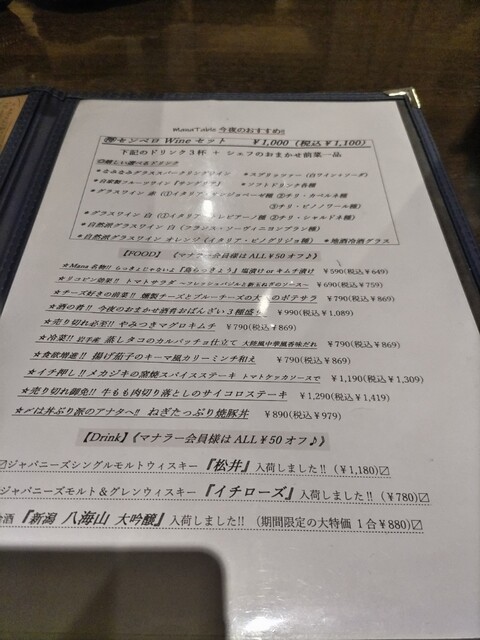 Mana Table 今夜のおすすめ!!
センベロ Wine セット ￥1,000 (税込￥1,100)
下記のドリンク3杯 + シェフのおまかせ前菜一品
◎嬉しい選べるドリンク
*なみなみグラススパークリングワイン *スプリッツァー (白ワイン・ソーダ)
*自家製フルーツワイン『サングリア』 *ソフトドリンク各種
*グラスワイン 赤 (①イタリア・サンジョベーゼ種 ②チリ・カベルネ種
③チリ・ピノノワール種)
*グラスワイン 白 (①イタリア・トレビアーノ種 ②チリ・シャルドネ種)
*自然派グラスワイン 白 (フランス・ソーヴィニヨンブラン種)
*自然派グラスワイン オレンジ (イタリア・ピノグリジョ種) *地酒冷酒グラス
【FOOD】《マナラー会員様は ALL￥50 オフ♪》
★Mana 名物!! らっきょじゃないよ『島らっきょう』塩漬け or キムチ漬け ￥590(税込￥649)
★リコピン効果!! トマトサラダ ～フレッシュバジルと新玉ねぎのソース～ ￥690(税込￥759)
★チーズ好きの前菜!! 燻製チーズとブルーチーズの大人のポテサラ ￥790(税込￥869)
★酒の肴!! 今夜のおまかせ酒肴おばんざい3種盛り ￥990(税込￥1,089)
★売り切れ必至!! やみつきマグロキムチ ￥790(税込￥869)
★冷菜!! 岩手産 蒸しタコのカルパッチョ仕立て 大陸風中華風香味だれ ￥790(税込￥869)
★食欲増進!! 揚げ茄子のキーマ風カリーミンチ和え ￥790(税込￥869)
★イチ押し!! メカジキの窯焼スパイスステーキ トマトケッカソースで ￥1,190(税込￥1,309)
★売り切れ御免!! 牛もも肉切り落としのサイコロステーキ ￥1,290(税込￥1,419)
★〆は丼ぶり派のアナタへ!! ねぎたっぷり焼豚丼 ￥890(税込￥979)
【Drink】《マナラー会員様は ALL￥50 オフ♪》
☑ジャパニーズシングルモルトウィスキー『松井』入荷しました!! (￥1,180)☑
ジャパニーズモルト＆グレンウィスキー『イチローズ』入荷しました!! (￥780)☑
酒『新潟 八海山 大吟醸』入荷しました!! (期間限定の大特価 1合￥880)☑